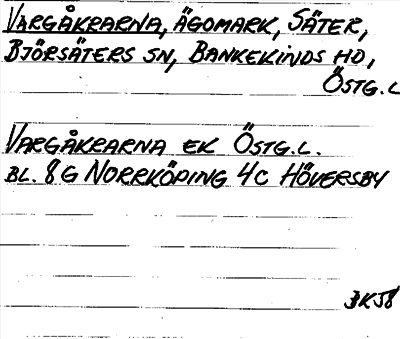 VARGÅKRARNA, ÄGOMARK, SÄTER,
BJÖRSÄTERS SN, BANKEKINDS HD,
ÖSTG.L
VARGÅKRARNA EK ÖSTG.L.
BL. 8G NORRKÖPING 4C HÖVERSBY